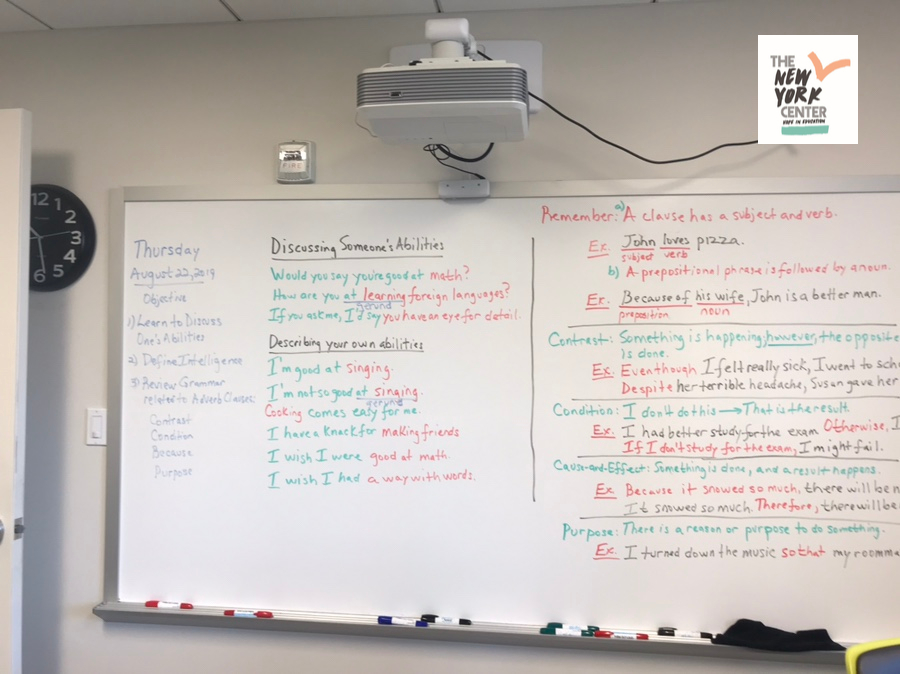 THE
NEW
YORK
CENTER
HOPE IN EDUCATION
FIRE
12
1
2
3
4
5
6
Thursday
August 22, 2019
Objective
1) Learn to Discuss
One's Abilities
2) Define Intelligence
3) Review Grammar
related to Adverb Clauses:
Contrast
Condition
Because
Purpose
Discussing Someone's Abilities
Would you say you're good at math?
How are you at learning foreign languages?
gerund
If you ask me, I'd say you have an eye for detail.
Describing your own abilities
I'm good at singing.
I'm not so good at singing.
gerund
Cooking comes easy for me.
I have a knack for making friends
I wish I were good at math.
I wish I had a way with words.
Remember: a) A clause has a subject and verb.
Ex. John loves pizza.
subject verb
b) A prepositional phrase is followed by a noun.
Ex. Because of his wife, John is a better man.
preposition noun
Contrast: Something is happening; however, the opposite
is done.
Ex. Even though I felt really sick, I went to sch
Despite her terrible headache, Susan gave her
Condition: I don't do this → That is the result.
Ex. I had better study for the exam Otherwise, I
If I don't study for the exam, I might fail.
Cause-and-Effect: Something is done, and a result happens.
Ex Because it snowed so much, there will be n
It snowed so much. Therefore, there will be
Purpose: There is a reason or purpose to do something.
Ex. I turned down the music so that my roomma